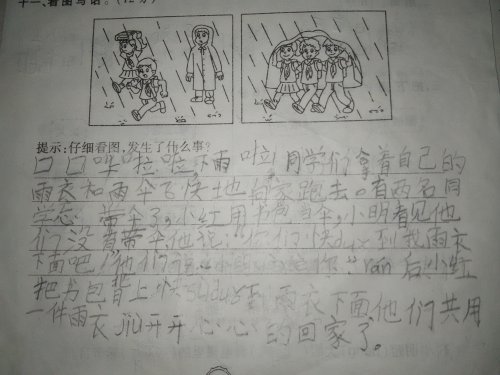 十一、看图写话。(12分)
提示:仔细看图,发生了什么事?
口口哗啦啦,下雨啦,同学们拿着自己的
雨衣和雨伞飞快地向家跑去。有两名同
学忘带伞了,小红用书包当伞,小明看见他
们没有带伞他说:你们快duǒ到我雨衣
下面吧!他们说:你。"rán后小红
把书包背上快sù duǒ到雨衣下面他们共用
一件雨衣jiù开开心心的回家了。